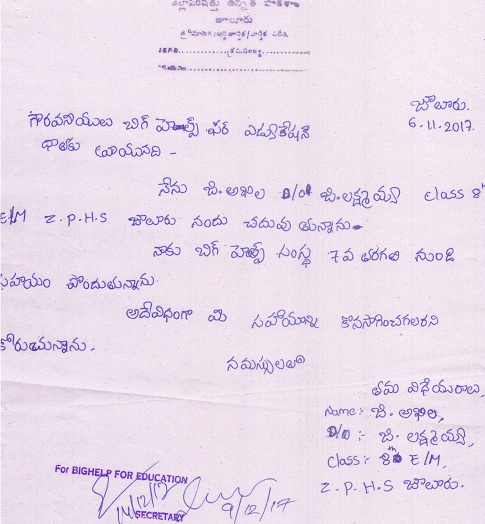 జిల్లాపరిషత్తు ఉన్నత పాఠశాల
జూలూరు
జూలూరు.
6.11.2017.
గౌరవనీయులు బిగ్ హెల్ప్ ఫర్ ఎడ్యుకేషన్
వ్రాయునది -
నేను జి. అఖిల D/o జి. లక్ష్మయ్య class 8th
E/M Z.P.H.S జూలూరు నందు చదువు తున్నాను.
నాకు బిగ్ హెల్ప్ సంస్థ 7 వ తరగతి నుండి
సహాయం పొందుతున్నాను.
అదేవిధంగా మి సహాయాన్ని కొనసాగించగలరని
కోరుచున్నాను.
నమస్సులతో
తమ విధేయురాలు,
Name:- జి. అఖిల,
D/O :- జి. లక్ష్మయ్య,
Class:- 8th E/M,
Z.P.H.S జూలూరు.
For BIGHELP FOR EDUCATION
14/12/17
9/12/17
SECRETARY